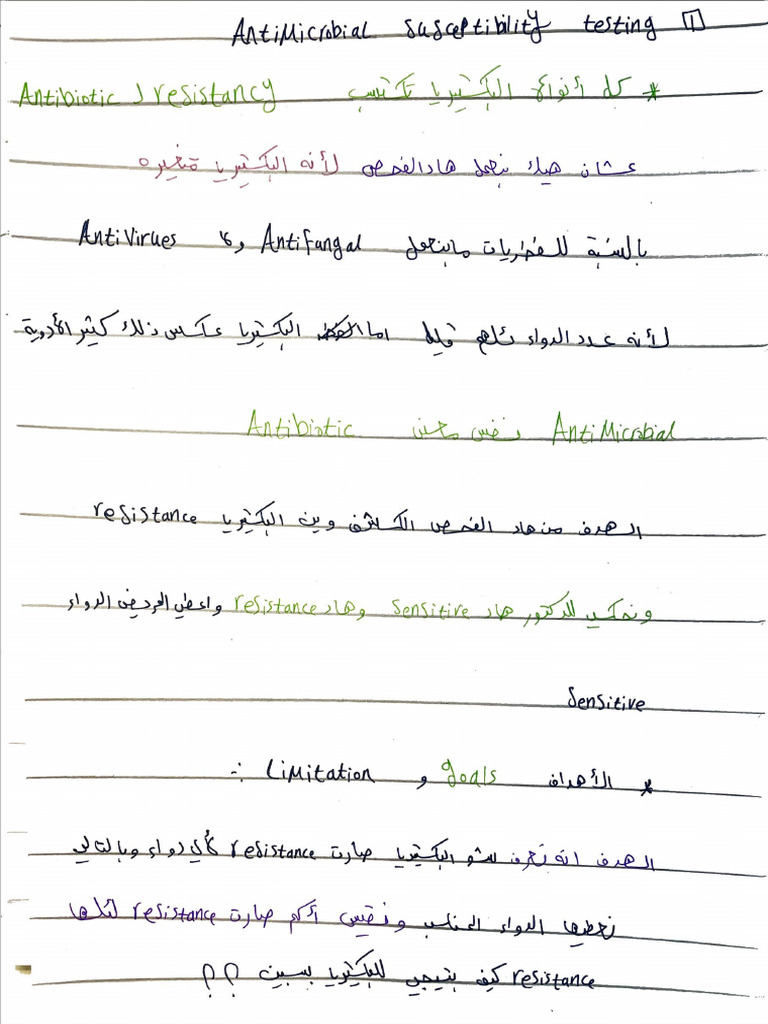 AntiMicrobial susceptibility testing 1
* كل أنواع البكتيريا تكتسب resistancy لـ Antibiotic
عشان هيك بنعمل هاد الفحص لأنه البكتيريا متغيره
بالنسبة للفطريات ما بنعمل Antifangal ولا AntiVirues
لأنه عدد الدواء تاعهم قليل اما البكتيريا عكس ذلك كثير الأدوية
AntiMicrobial نفس معنى Antibiotic
الهدف من هاد الفحص اكشف وين البكتيريا resistance
ونحكي للدكتور هاد sensitive وهاد resistance واعطي المريض الدواء
sensitive
* الأهداف goals و Limitation :-
الهدف انه نعرف لشو البكتيريا صارت resistance لأي دواء وبالتالي
نعطيها الدواء المناسب ونقيس أكم صارت resistance لإلها
resistance كيف بتيجي للبكتيريا بسببين ؟؟